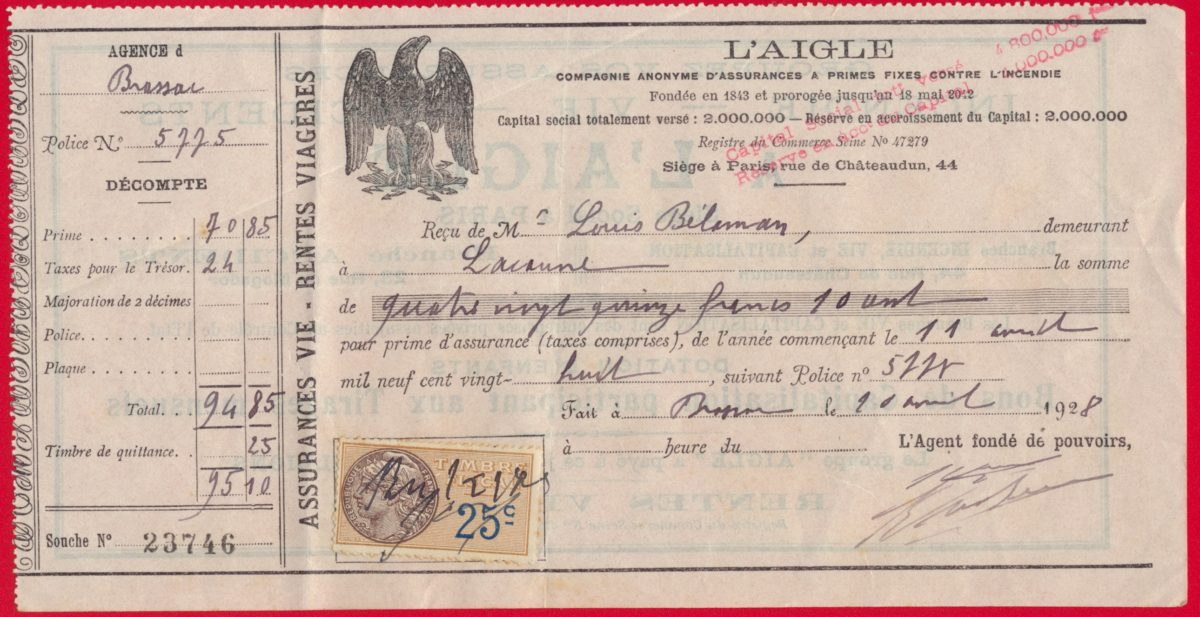 AGENCE d
Brassac
Police N° 5775
DÉCOMPTE
Prime 70 85
Taxes pour le Trésor. 24
Majoration de 2 décimes
Police.
Plaque
Total. 94 85
Timbre de quittance. 25
95 10
Souche N° 23746
ASSURANCES VIE - RENTES VIAGÈRES
L'AIGLE
COMPAGNIE ANONYME D'ASSURANCES A PRIMES FIXES CONTRE L'INCENDIE
Fondée en 1843 et prorogée jusqu'au 18 mai 2042
Capital social totalement versé : 2.000.000 — Réserve en accroissement du Capital : 2.000.000
Registre du Commerce Seine No 47279
Siège à Paris, rue de Châteaudun, 44
Capital Social versé 4.800.000
Réserve en Capital 000.000
Reçu de Mr Louis demeurant
à Lacaune la somme
de quatre vingt quinze francs 10 cent
pour prime d'assurance (taxes comprises), de l'année commençant le 11 avril
mil neuf cent vingt- huit, suivant Police n° 5775
Fait à Brassac le avril 1928
à heure du L'Agent fondé de pouvoirs,
TIMBRE
25c